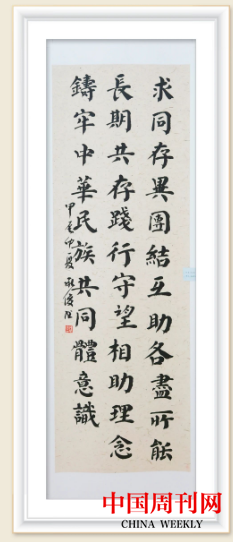 求同存異團結互助各盡所能
長期共存踐行守望相助理念
鑄牢中華民族共同體意識
甲辰仲夏
中国周刊网
CHINA WEEKLY